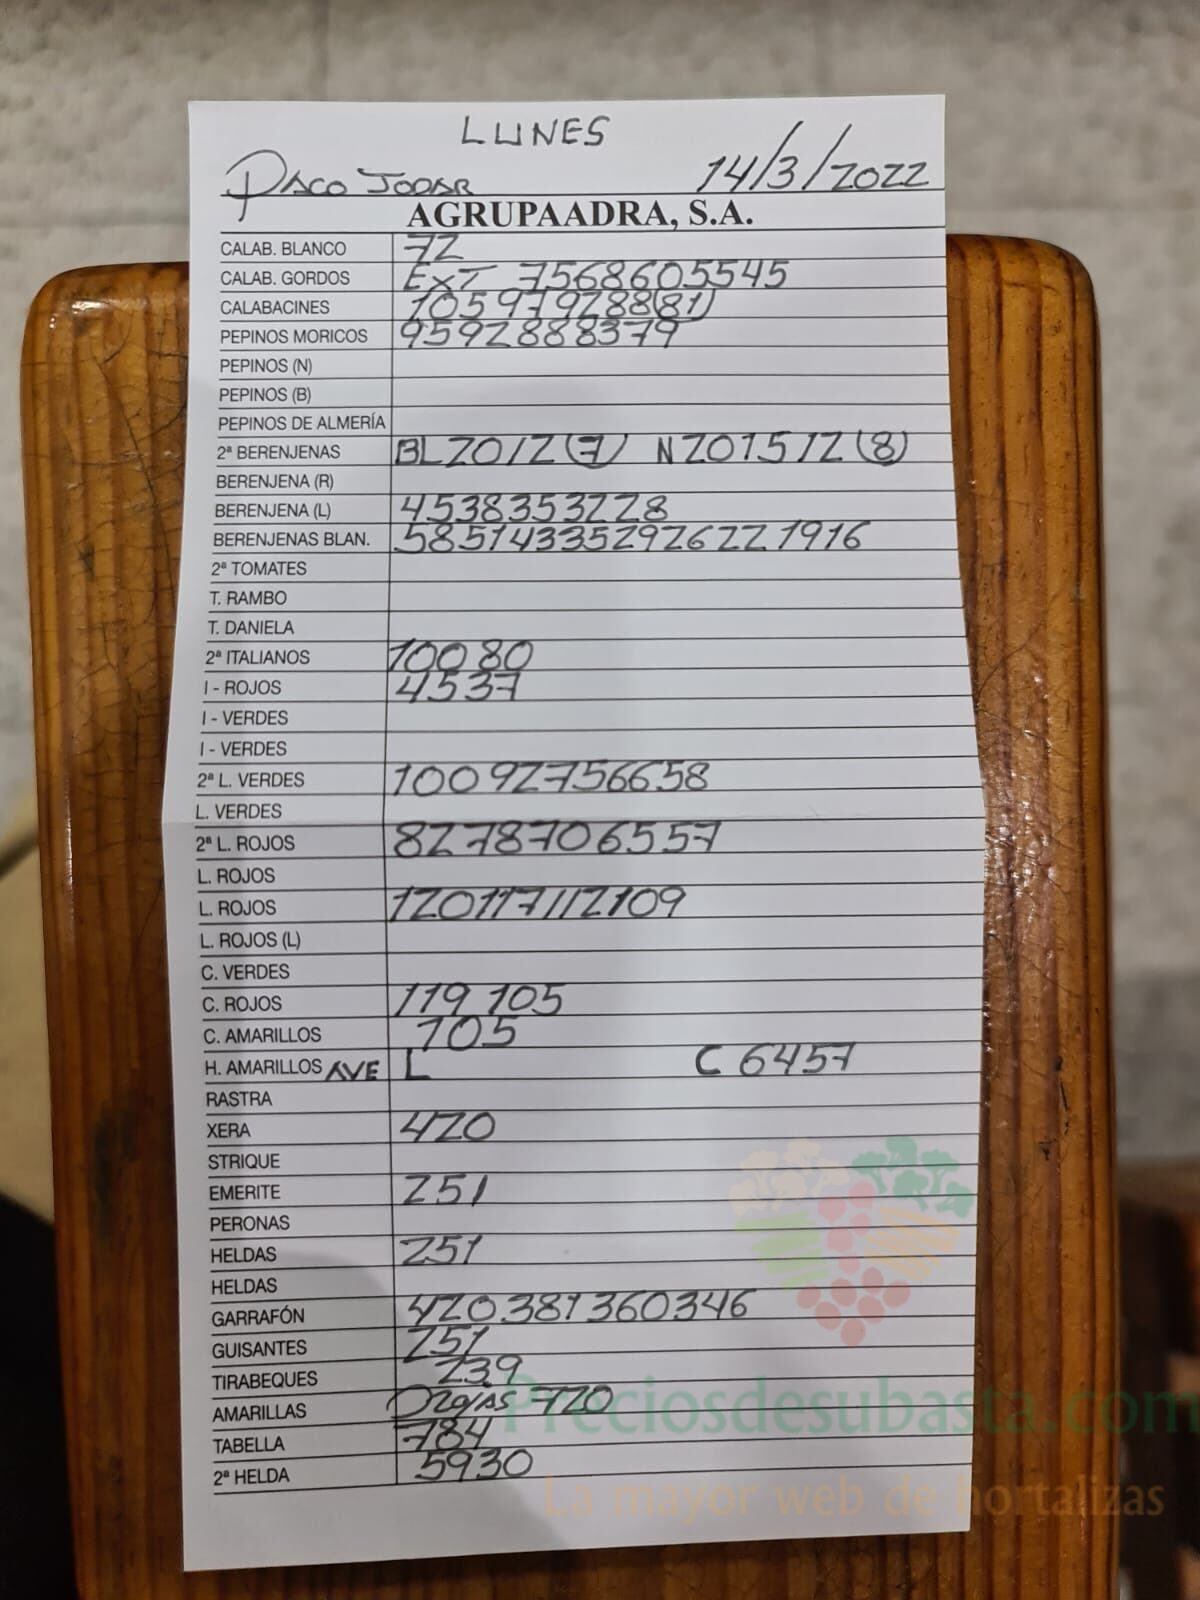 LUNES
PACO JODAR 14/3/2022
AGRUPAADRA, S.A.
CALAB. BLANCO 72
CALAB. GORDOS EXT 7568605545
CALABACINES 105979288(81)
PEPINOS MORICOS 9592888379
PEPINOS (N)
PEPINOS (B)
PEPINOS DE ALMERÍA
2ª BERENJENAS BL 2012(7) N 201512(8)
BERENJENA (R)
BERENJENA (L) 4538353228
BERENJENAS BLAN. 5851433529262221916
2ª TOMATES
T. RAMBO
T. DANIELA
2ª ITALIANOS 100 80
I - ROJOS 4537
I - VERDES
I - VERDES
2ª L. VERDES 100 92756658
L. VERDES
2ª L. ROJOS 8278706557
L. ROJOS
L. ROJOS 120117112109
L. ROJOS (L)
C. VERDES
C. ROJOS 119 105
C. AMARILLOS 105
H. AMARILLOS AVE L C 6457
RASTRA
XERA 420
STRIQUE
EMERITE 251
PERONAS
HELDAS 251
HELDAS
GARRAFÓN 420 381 360 346
GUISANTES 251
TIRABEQUES 239
AMARILLAS 720
TABELLA 784
2ª HELDA 5930
Preciosdesubasta.com
La mayor web de hortalizas